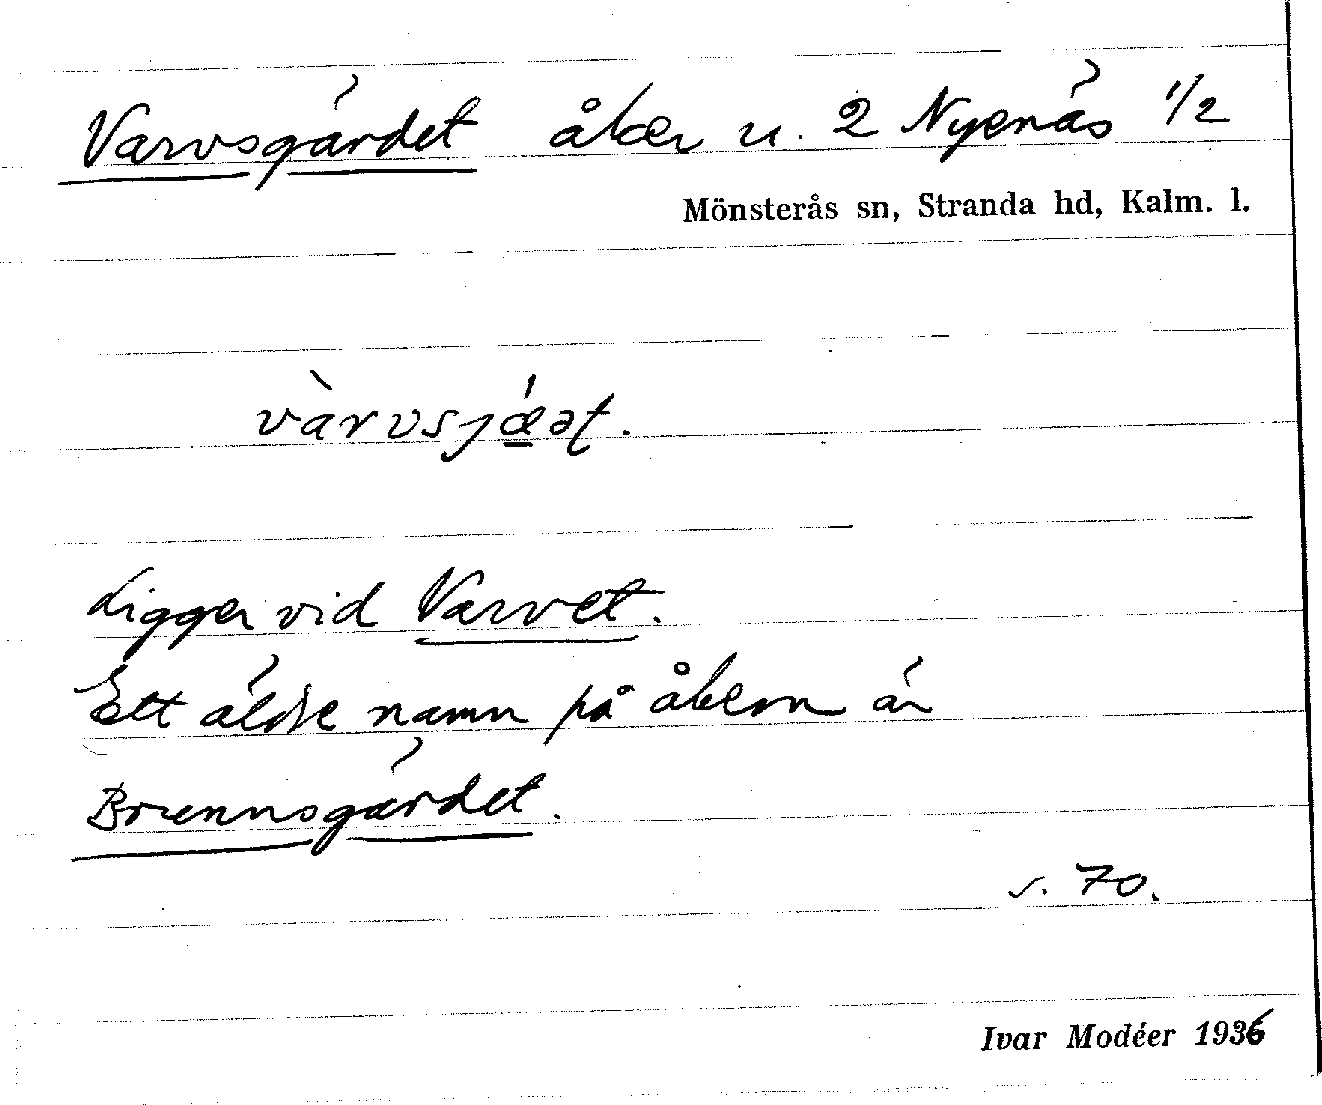 Varvsgärdet åker u. 2 Nyenäs 1/2
Mönsterås sn, Stranda hd, Kalm. l.
vàrvsjǽət.
Ligger vid Varvet.
Ett äldre namn på åkern är
Brunnsgärdet.
s. 70.
Ivar Modéer 1936